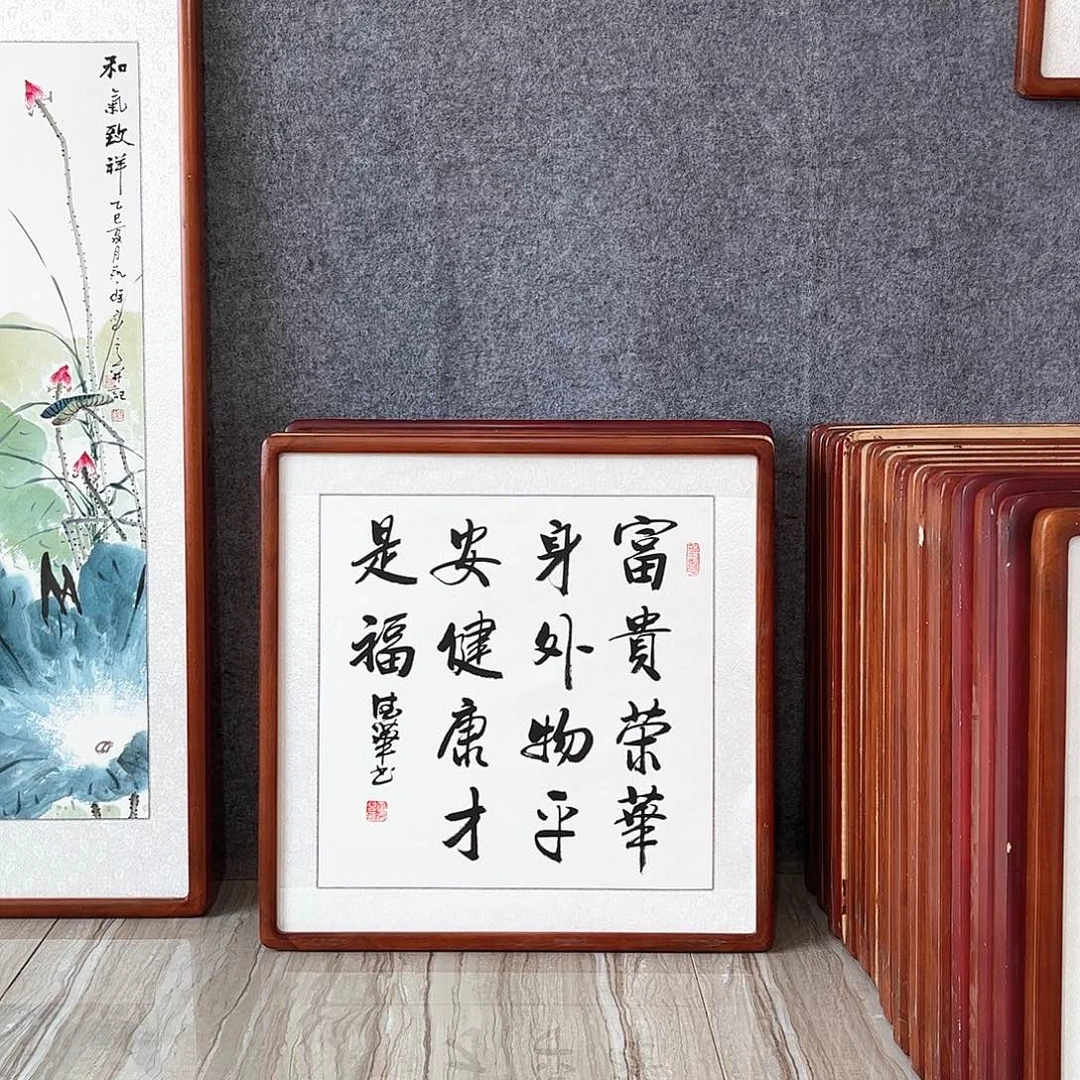 富貴荣華
身外物平
安健康才
是福
德華书
和氣致祥
乙巳夏月